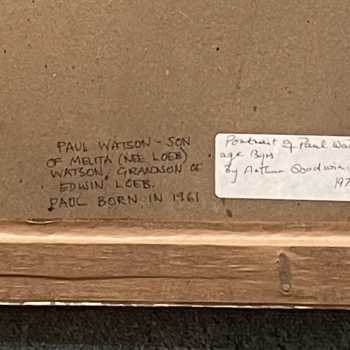 PAUL WATSON - SON
OF MELITA (NEE LOEB)
WATSON, GRANDSON OF
EDWIN LOEB.
PAUL BORN IN 1961
Portrait of Paul Wat
age 8yrs
by Arthur Goodwin
197